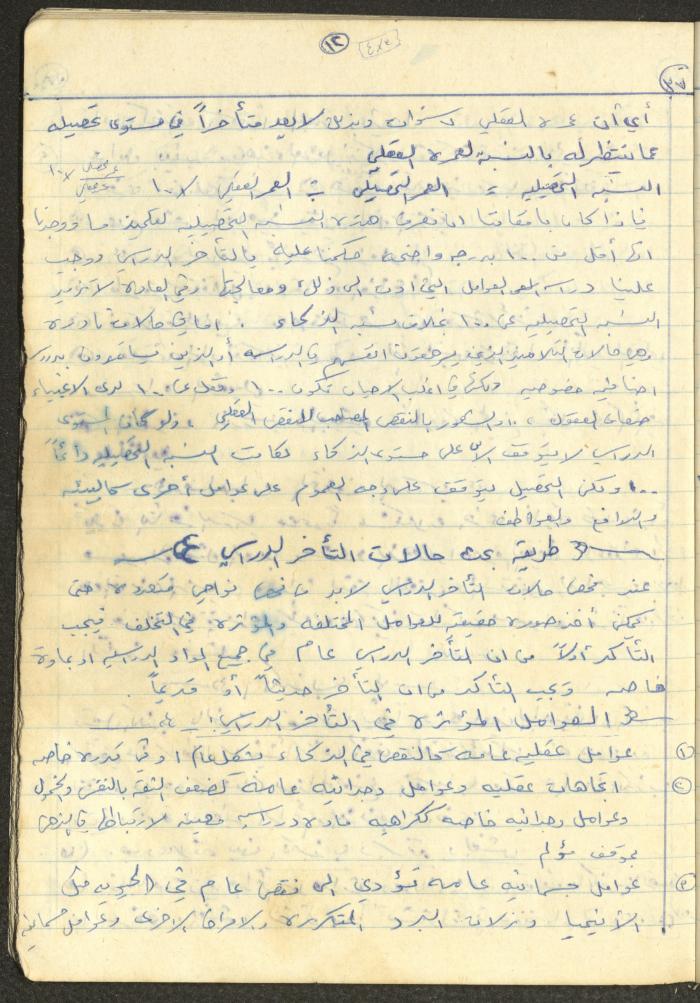 ١٢
٣٧
أي أن عمره العقلي ٨ سنوات وبذلك لا يعد متأخراً في مستوى تحصيله
عما ينتظر له بالنسبة لعمره العقلي
النسبه التحصيليه = العمر التحصيلي ÷ العمر العقلي × ١٠٠
فإذا كان بامكاننا ان نعرف هذه النسبه التحصيليه لفكمين ما ووجدنا
انها أقل من ١٠٠ بدرجه واضحه حكمنا عليه بالتأخر الدراسي ووجب
علينا دراسه العوامل التي أدت الى ذلك ومعالجتها وفي العادة لا تزيد
النسبه التحصيليه عن ١٠٠ بخلاف نسبه الذكاء . اما في حالات نادره
وهي حالات التلاميذ الذين يرهقون انفسهم في الدراسه أو الذين يساعدون بدروس
اضافيه خصوصيه ولكنها في اغلب الاحيان تكون ١٠٠ وتقل عن ١٠٠ لدى الاغبياء
ضعاف العقول ، او الشعور بالنقص المصاحب للنقص العقلي ، ولو كان المستوى
الدراسي لا يتوقف الا على مستوى الذكاء لكانت النسبه التحصيليه دائماً
١٠٠ ولكن التحصيل يتوقف على وجه العموم على عوامل أخرى كالبيئه
والدوافع والعواطف
طريقه بحث حالات التأخر الدراسي
عند فحص حالات التأخر الدراسي لابد من فحص نواحي متعدده حتى
يمكن أخذ صوره حقيقيه للعوامل المختلفه والمؤثره في التخلف فيجب
التأكد أولاً من ان التأخر الدراسي عام في جميع المواد الدراسيه او بمادة
خاصه ويجب التأكد من ان التأخر حديثاً أو قديماً .
العوامل المؤثره في التأخر الدراسي :-
١ عوامل عقليه عامه كالنقص في الذكاء بشكل عام او في قدره خاصه
٢ اتجاهات عقليه وعوامل وجدانيه عامه كضعف الثقه بالنفس والخمول
وعوامل وجدانيه خاصه ككراهية ماده دراسيه معينه لارتباطها في الذهن
بموقف مؤلم
٣ عوامل جسمانيه عامه تؤدي الى نقص عام في الحيويه مثل
الأنيميا ونزلات البرد المتكرره والامراض الاخرى وعوامل جسمانيه